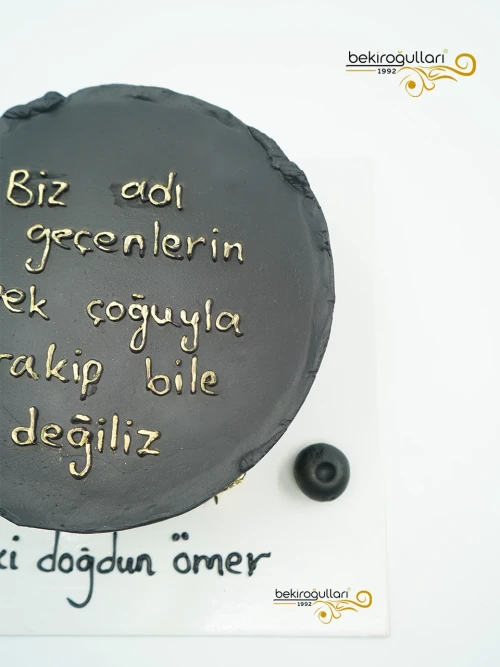 bekiroğulları®
1992
Biz adı
geçenlerin
ek çoğuyla
rakip bile
değiliz
ki doğdun ömer
bekiroğulları®
1992